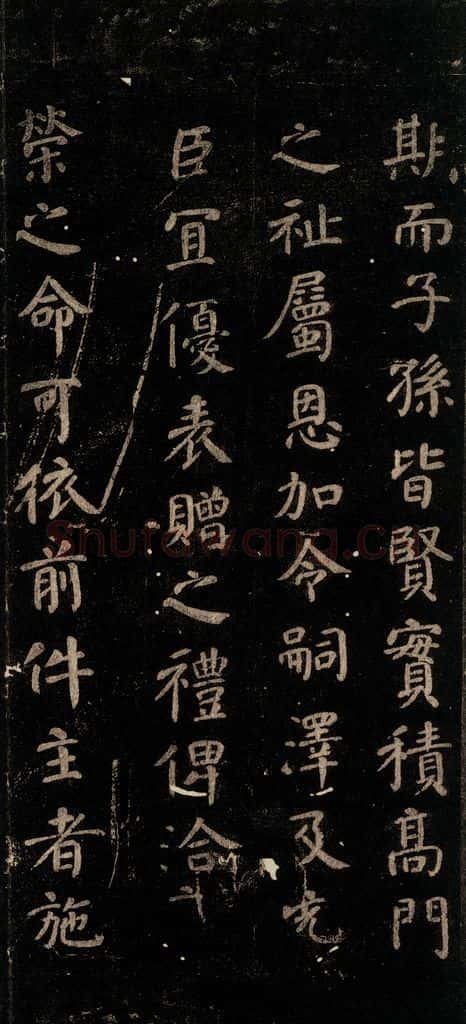 而子孫皆賢實積高門
之祉屬恩加令嗣澤及先
臣宜優表贈之禮俾洽
榮之命可依前件主者施
Shufawang.cn